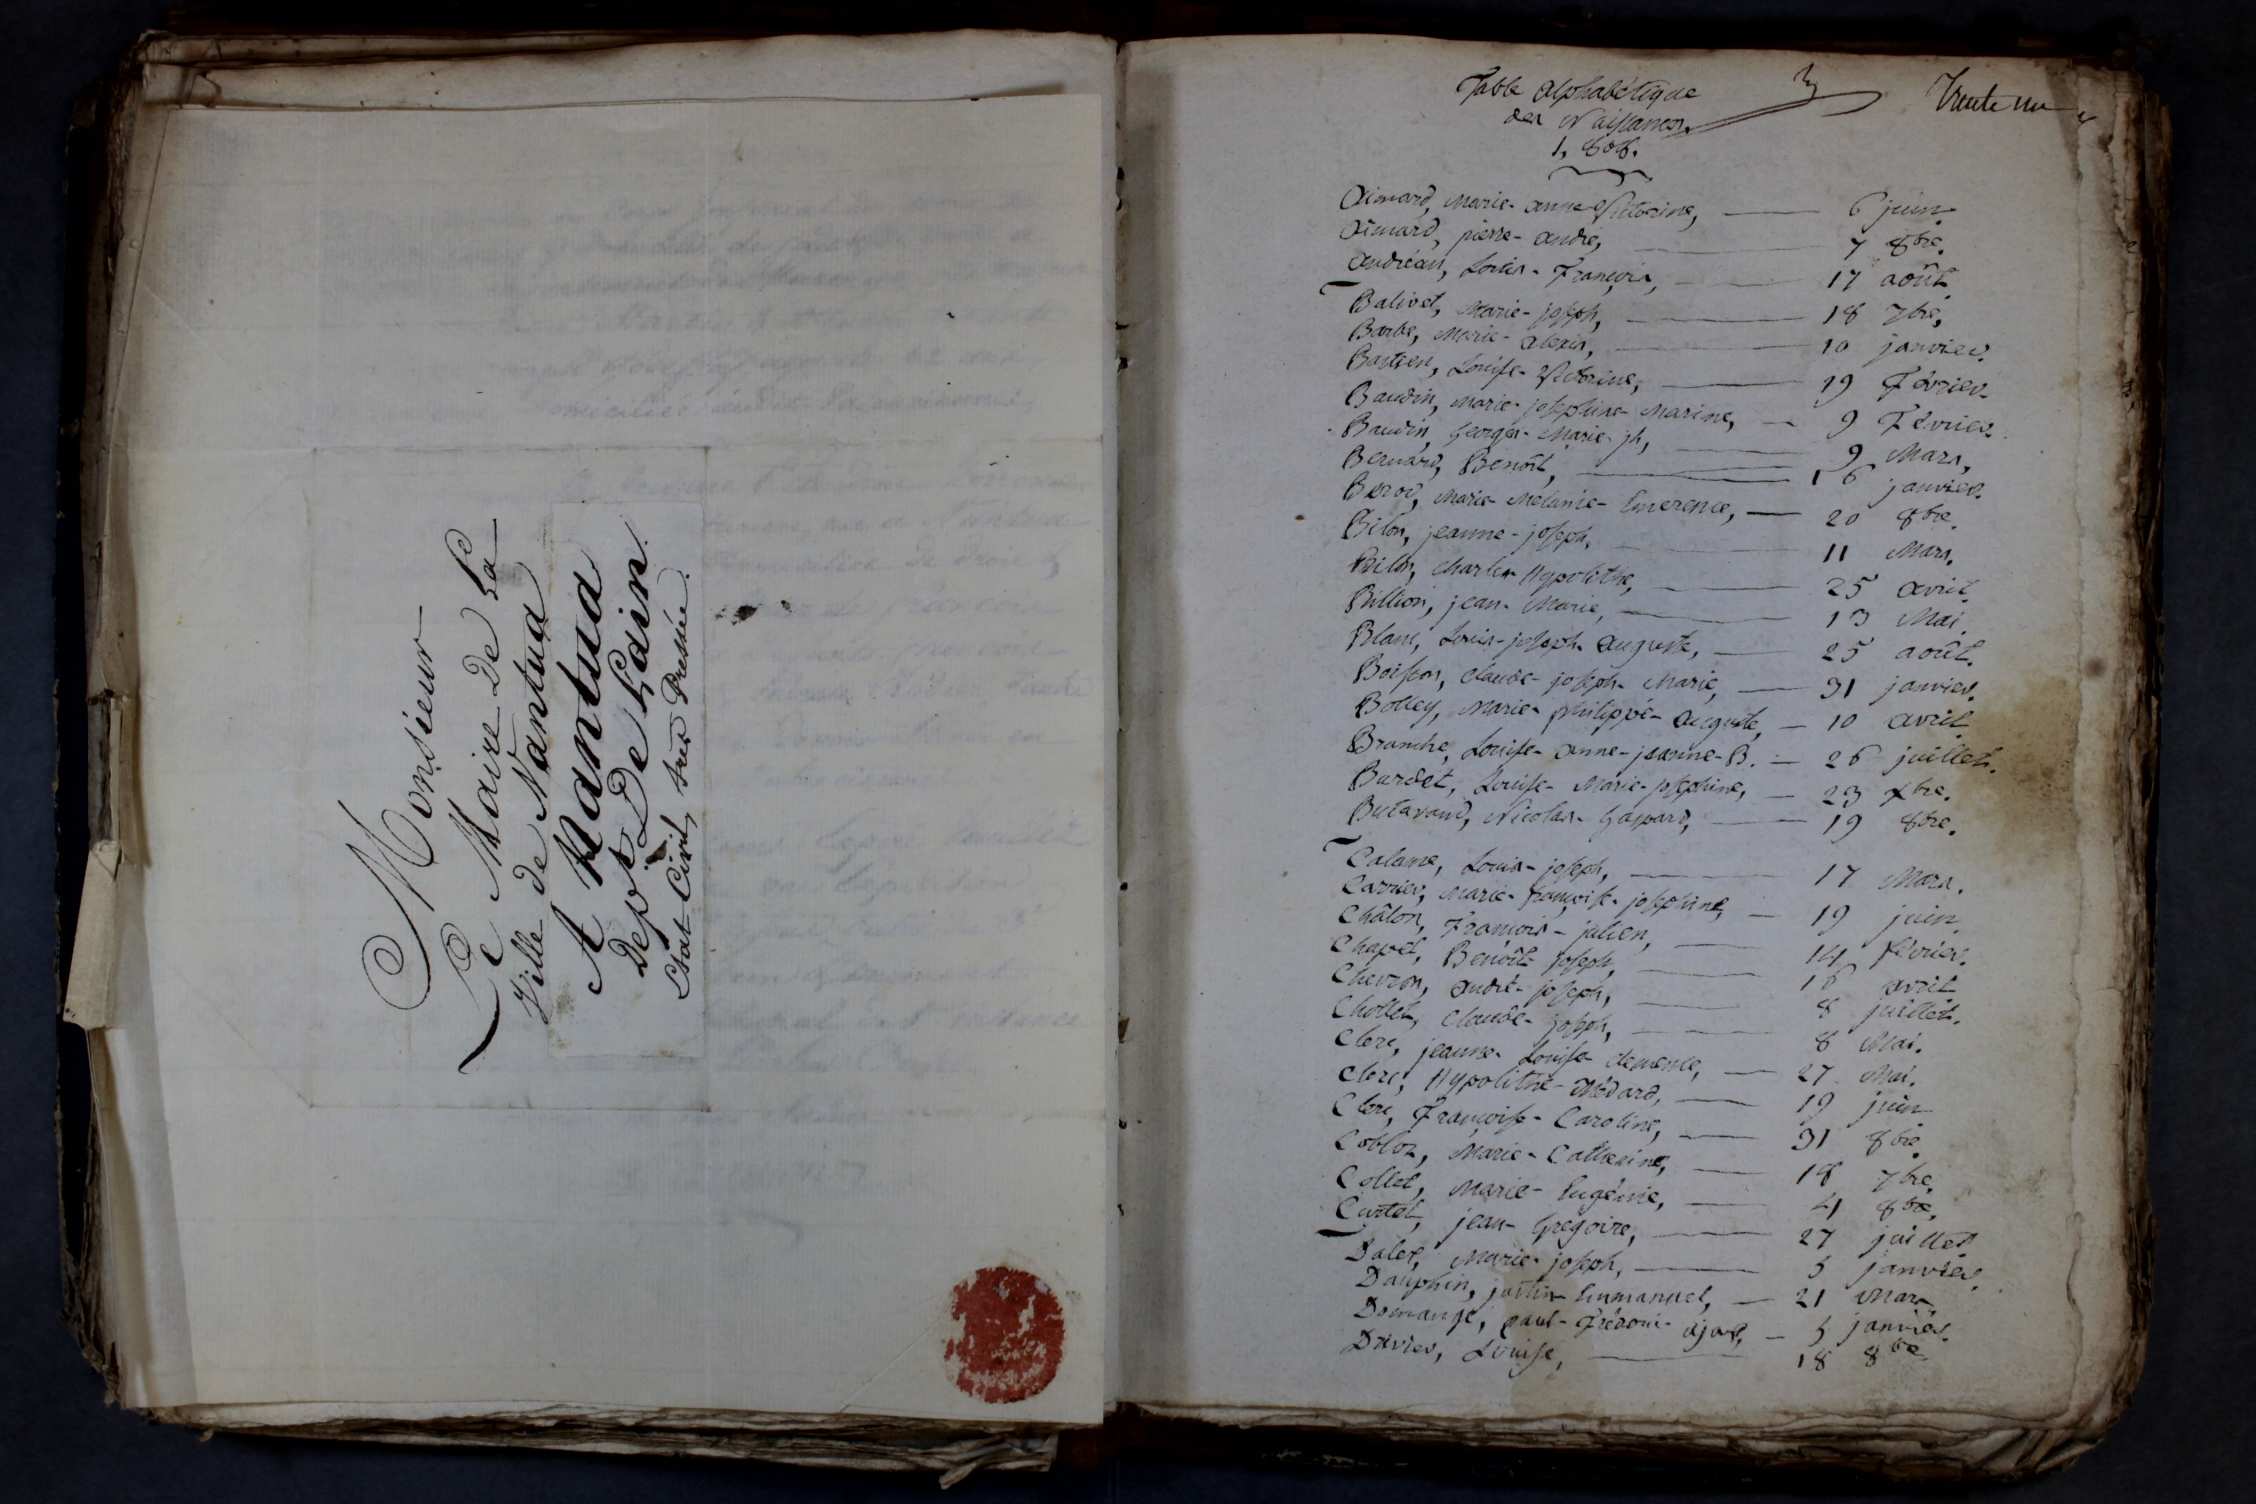 Monsieur
Le Maire De La
Ville de Nantua
A Nantua
Dept De Lain.
Etat Civil, tres Pressée.
Table alphabétique
des Naissances
1,808.
Trente un
Aimard, Marie-anne-Victorine, 6 juin.
Aimard, pierre-andré, 7 8bre.
Andréan, Louis-François, 17 août.
Balivet, Marie-joseph, 18 7bre,
Barbe, Marie-alexis, 10 janvier.
Louise-Victorine, 19 Février.
Baudin, Marie-josephine-Marine, 9 Février.
Baudin, Georges-Marie-jh, 9 Mars,
Bernard, Benoît, 16 janvier.
Marie-Mélanie-Emerence, 20 8bre.
Bilon, jeanne-joseph, 11 Mars.
Bilon, charles-Hypolithe, 25 avril.
Billion, jean-Marie, 13 Mai.
Blanc, Louis-joseph-auguste, 25 août.
Boisson, claude-joseph-Marie, 31 janvier.
Bolley, Marie-philippe-auguste, 10 avril.
Branche, Louise-anne-jeanne-B. 26 juillet.
Burdet, Louise-Marie-josephine, 23 xbre.
Butavand, Nicolas-Gaspard, 19 8bre.
Calame, Louis-joseph, 17 Mars.
Carrier, Marie-françoise-josephine, 19 juin.
Châlon, François-julien, 14 février.
Chapel, Benoît-joseph, 16 avril
Chevron, andré-joseph, 8 juillet.
Chollet, Claude-joseph, 8 Mai.
Clerc, jeanne-Louise-clemence, 27 Mai.
Clerc, Hypolithe-Médard, 19 juin
Clerc, Françoise-Caroline, 31 8bre.
Cobloz, Marie-Catherine, 18 7bre.
Collet, Marie-Eugénie, 21 8bre.
Curtet, jean-Gregoire, 27 juillet.
Dalex, Marie-joseph, 5 janvier.
Dauphin, justin-Emmanuel, 21 Mars
Domange, paul-Fréderic- 5 janvier.
Louise, 18 8bre